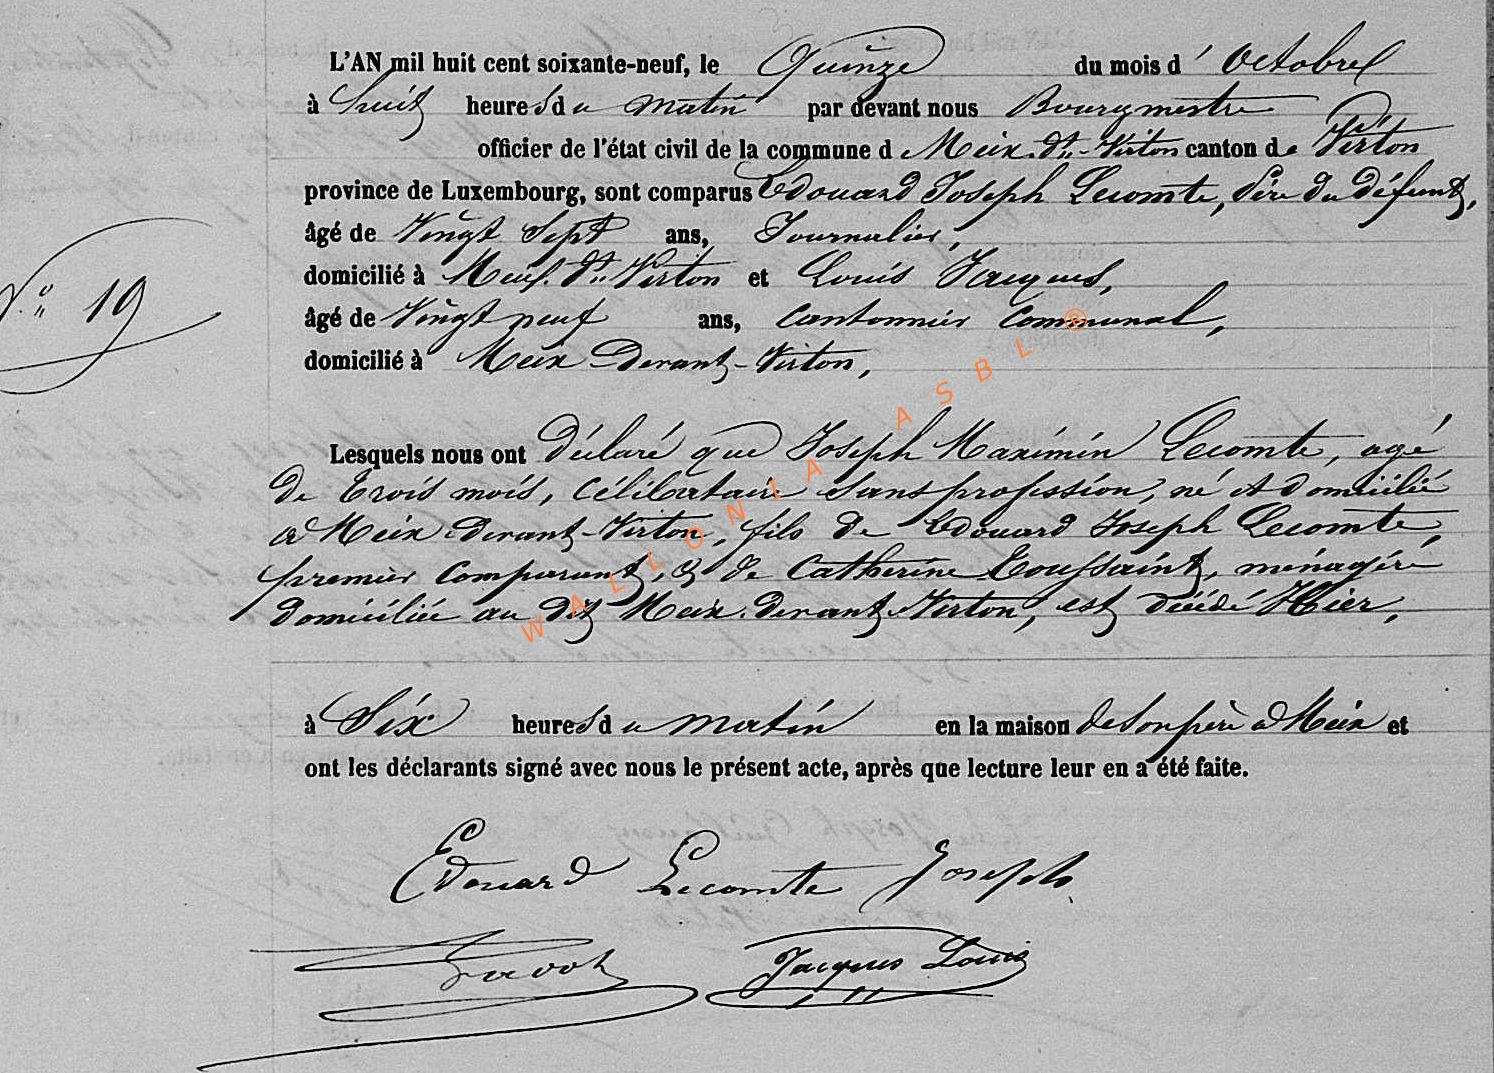 L'AN mil huit cent soixante-neuf, le Quinze du mois d'octobre
à huit heures du matin par devant nous Bourgmestre
officier de l'état civil de la commune de Meix-dt-Virton canton de Virton
province de Luxembourg, sont comparus Edouard Joseph Lecomte, Père du défunt,
âgé de Vingt Sept ans, Journalier,
domicilié à Meix-dt-Virton et Louis Jacques,
N° 19
âgé de Vingt neuf ans, Cantonnier Communal,
domicilié à Meix-Devant-Virton,
Lesquels nous ont Déclaré que Joseph Maximin Lecomte, agé
de trois mois, célibataire sans profession, né et domicilié
à Meix-Devant-Virton, fils de Edouard Joseph Lecomte,
premier Comparant, & de Catherine Toussaint, ménagère
domiciliée au dit Meix-devant-Virton, est décédé Hier,
à Six heures du matin en la maison de son père à Meix et
ont les déclarants signé avec nous le présent acte, après que lecture leur en a été faite.
Edouard Lecomte Joseph
Jacques Louis
WALLONIA ASBL ®